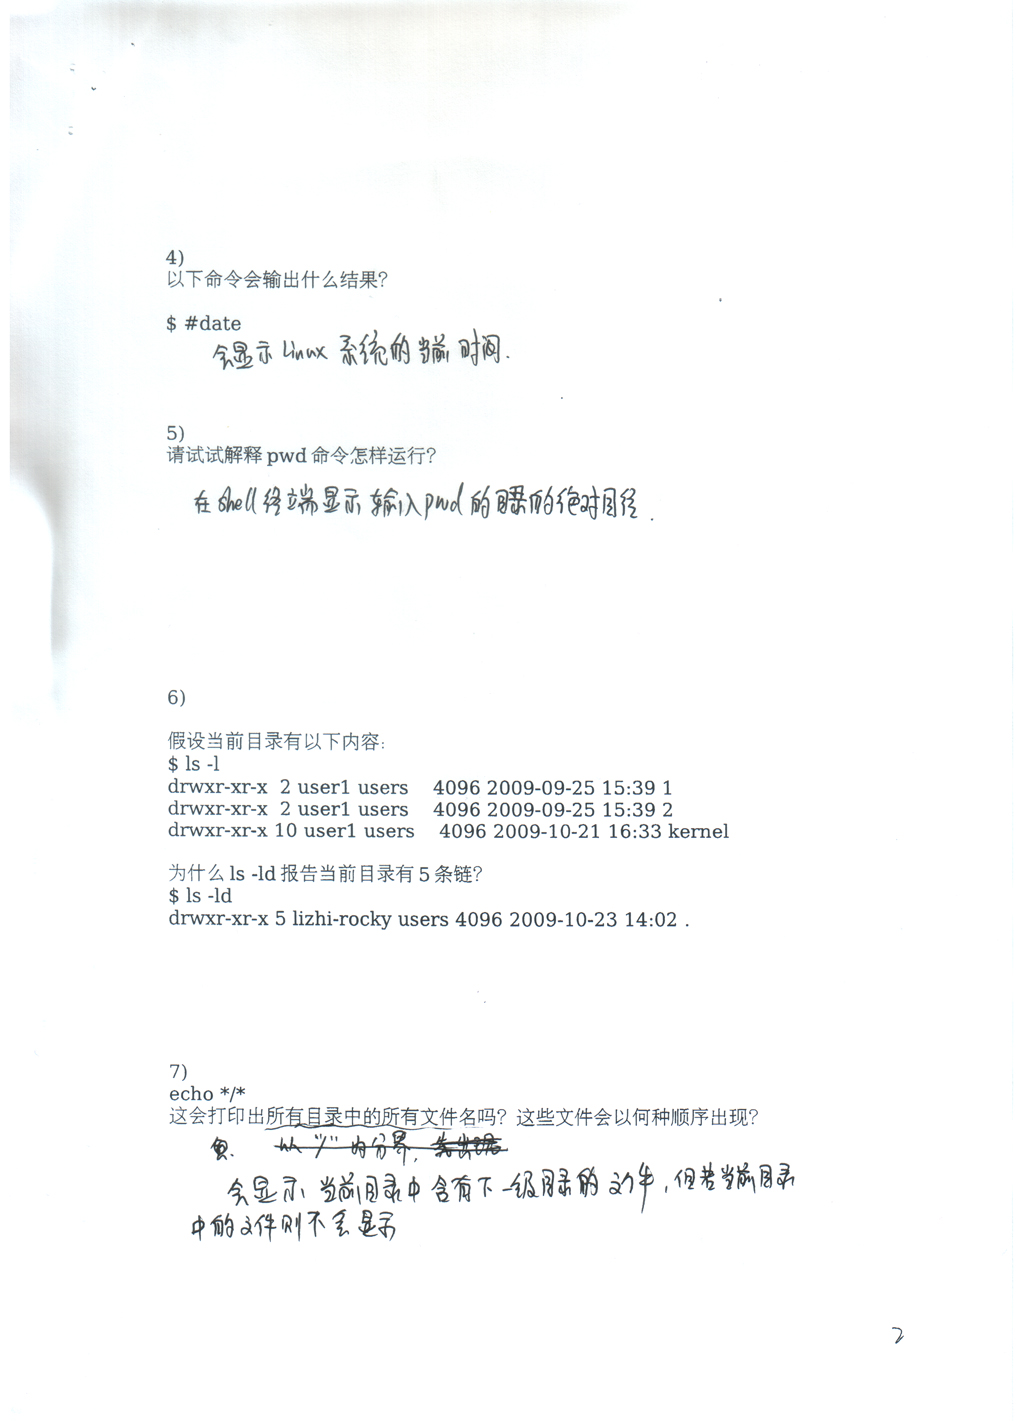 4)
以下命令会输出什么结果?
$ #date
会显示 Linux 系统的当前时间.
5)
请试试解释 pwd 命令怎样运行?
在 shell 终端显示输入 pwd 的目录的绝对路径.
6)
假设当前目录有以下内容:
$ ls -l
drwxr-xr-x 2 user1 users 4096 2009-09-25 15:39 1
drwxr-xr-x 2 user1 users 4096 2009-09-25 15:39 2
drwxr-xr-x 10 user1 users 4096 2009-10-21 16:33 kernel
为什么 ls -ld 报告当前目录有 5 条链?
$ ls -ld
drwxr-xr-x 5 lizhi-rocky users 4096 2009-10-23 14:02 .
7)
echo */*
这会打印出所有目录中的所有文件名吗? 这些文件会以何种顺序出现?
以 "/" 为分界,
会显示 当前目录中含有下一级目录的文件, 但若当前目录
中的文件则不会显示
2